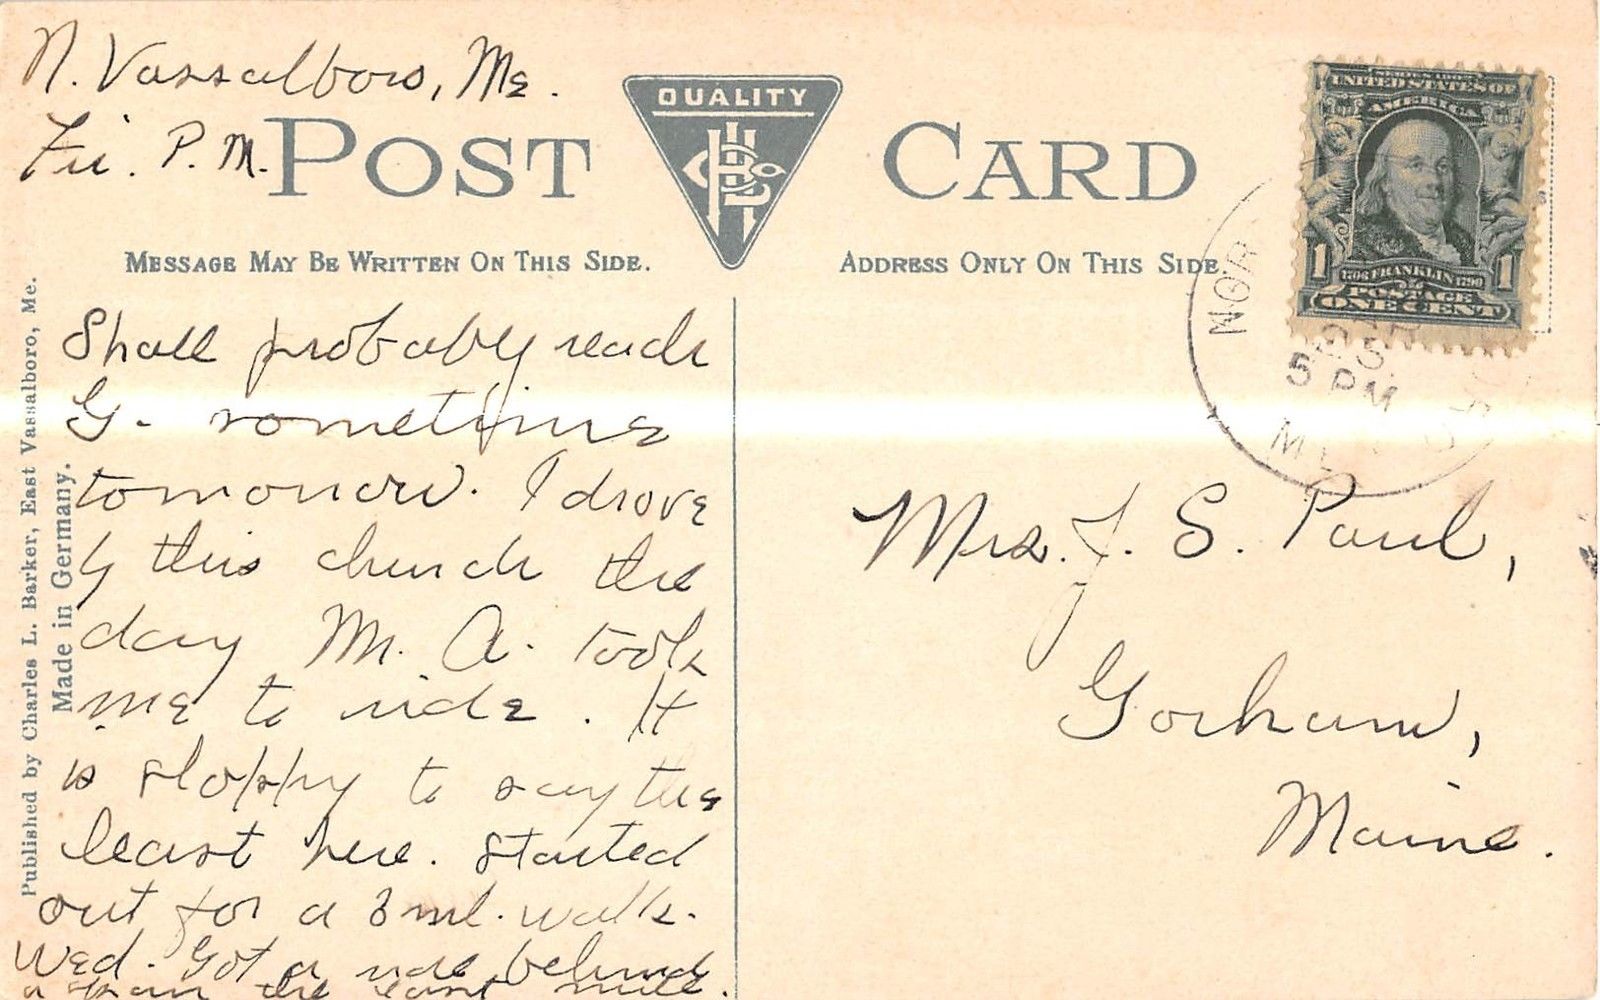 N. Vassalboro, Me.
Fri. P. M.
POST CARD
QUALITY
MESSAGE MAY BE WRITTEN ON THIS SIDE.
ADDRESS ONLY ON THIS SIDE
Shall probably reach
G. sometime
tomorrow. I drove
by this church the
day M. A. took
me to ride. It
is sloppy to say the
least here. Started
out for a 3 ml. walk.
Wed. Got a ride behind
a span the last mile.
Published by Charles L. Barker, East Vassalboro, Me.
Made in Germany.
UNITED STATES OF
AMERICA
1706 FRANKLIN 1790
1 1
POSTAGE
ONE CENT
NOR
5 PM
ME
Mrs. J. S. Paul,
Gorham,
Maine.